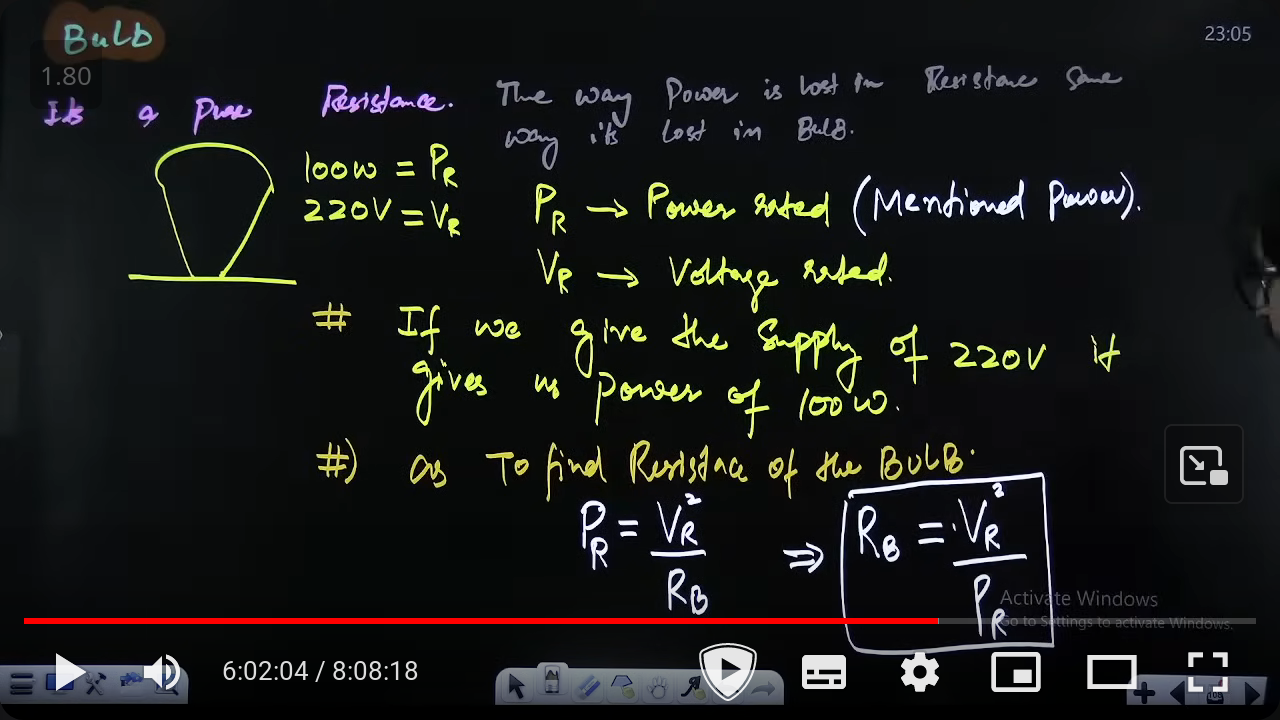 Bulb
23:05
1.80
Its a Pure Resistance.
The way Power is lost in Resistance same
way its lost in BulB.
100W = PR
220V = VR
PR → Power rated (Mentioned Power).
VR → Voltage rated.
# If we give the supply of 220V it
gives us power of 100W.
#) as To find Resistace of the BULB.
PR = VR²/RB ⇒ RB = VR²/PR
Activate Windows
Go to Settings to activate Windows.
6:02:04 / 8:08:18